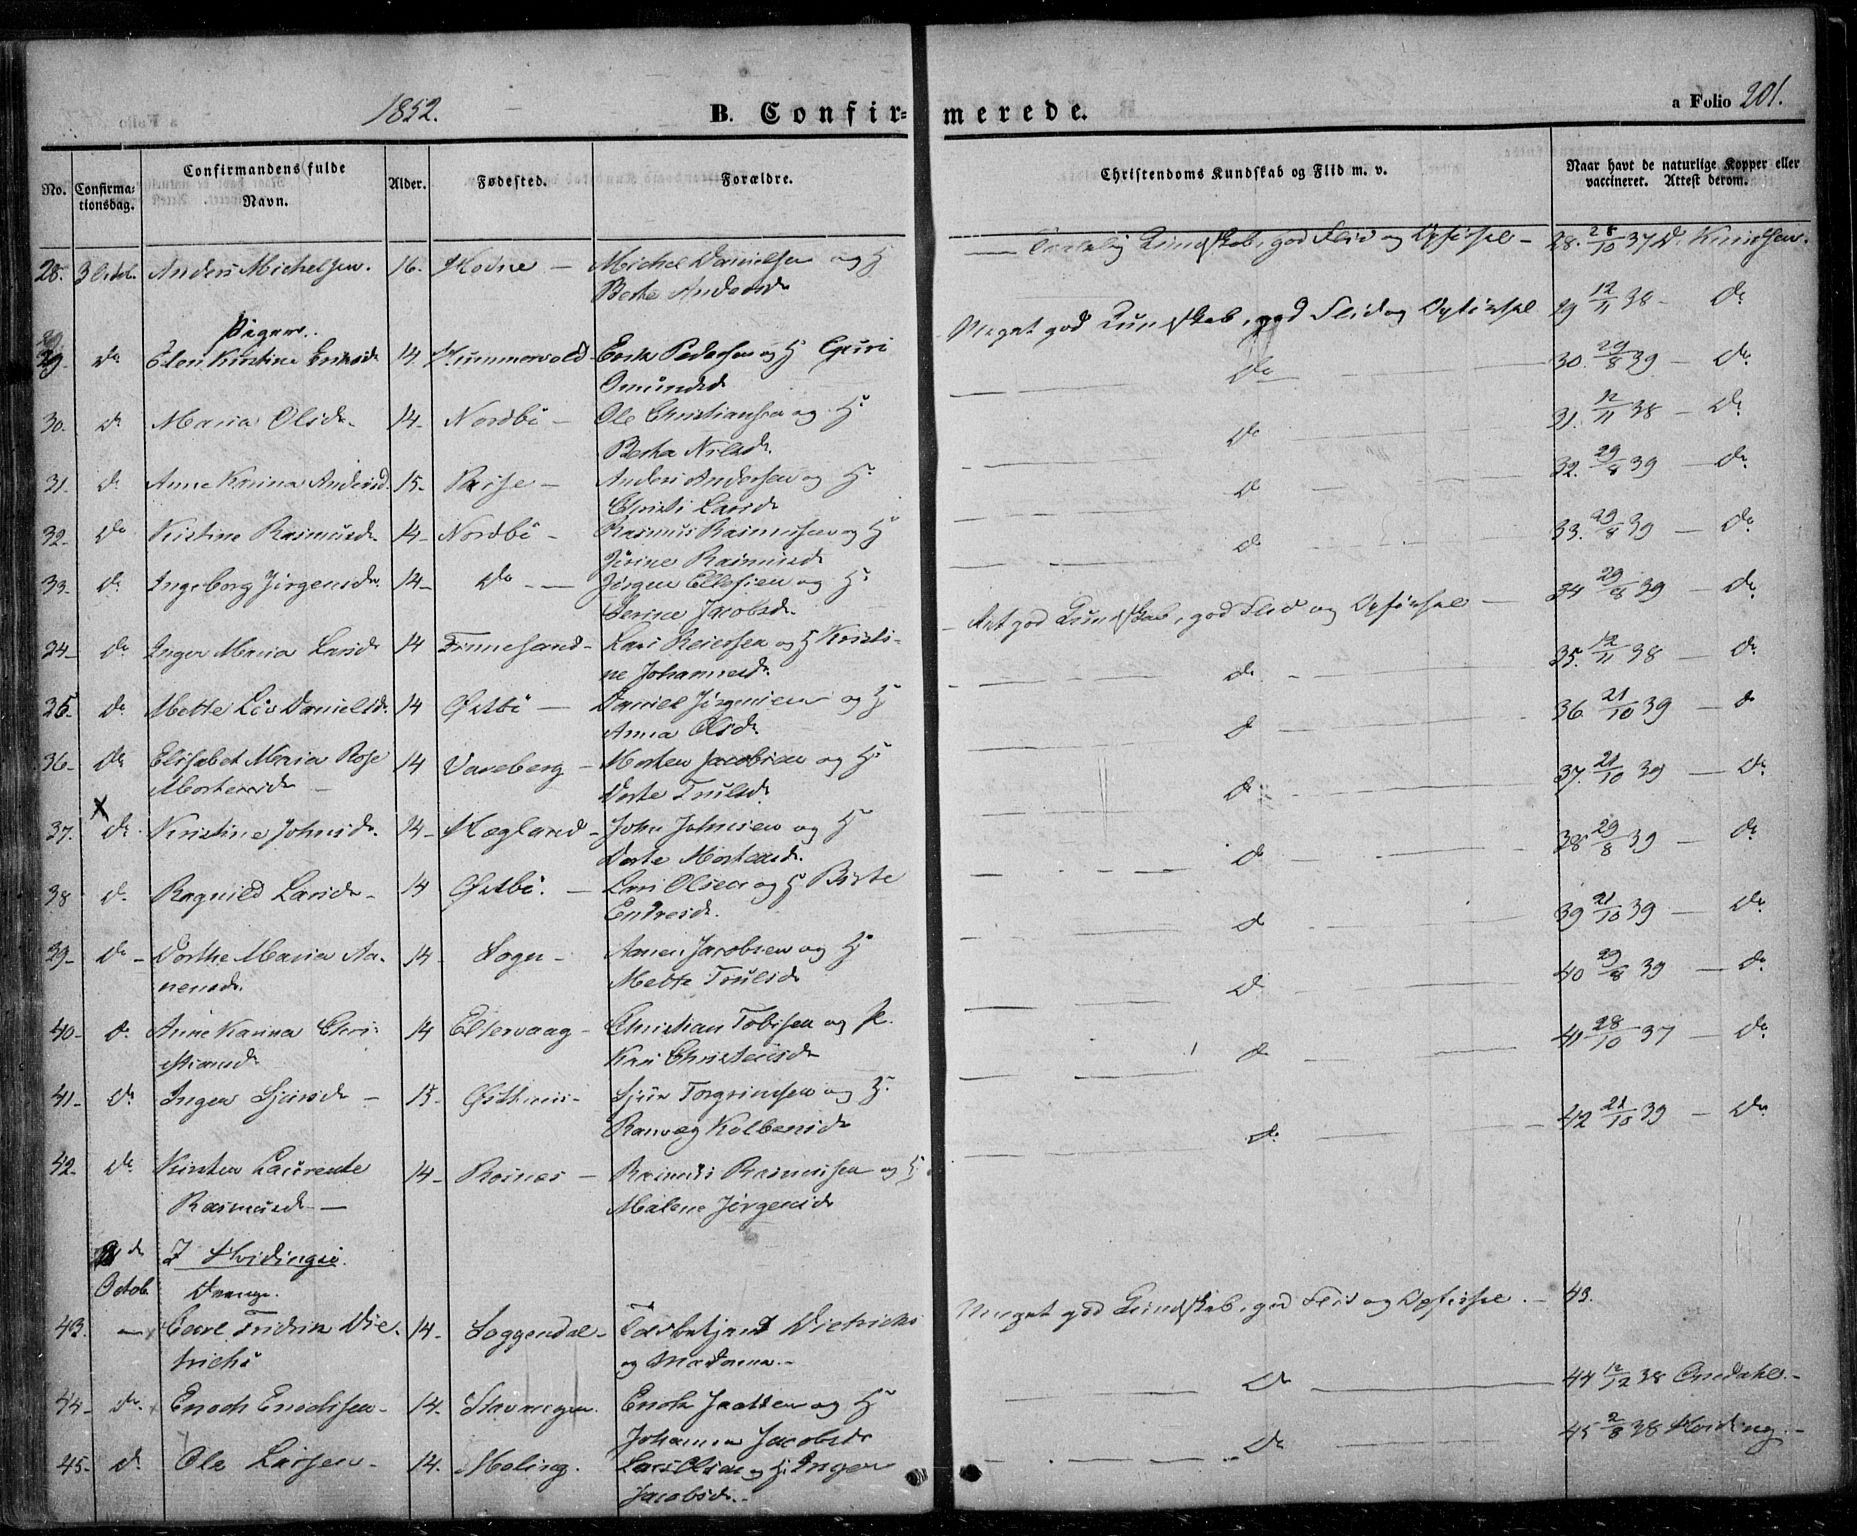 1852.
B. Confirmerede.
a Folio 201.
No.
Confirmationsdag.
Confirmandens fulde Navn.
Alder.
Fødested.
Forældre.
Christendoms Kundskab og Flid m. v.
Naar havt de naturlige Kopper eller vaccineret. Attest derom.
28. 3 Anders Michelsen. 16. Hodne — Michel Danielsen og H Kundskab, god Flid og Opførsel — 28. 28/10 37 Knudsen.
Berta Andersd
Piger.
29. Do Elen Kirstine Eriksd 14. Hummervold Erik Pedersen og H Guri Meget god Kundskab, god Flid og Opførsel 29 12/11 38 — Do
Omundsd
30. Do Maria Olsd. 14. Nordbö — Ole Christiansen og H. Do 30. 29/8 39 — Do
Berta Nilsd.
31. Do Anne Karina Andersd. 15. — Anders Andersen og H. Do 31. 12/11 38 — Do
Christi Larsd.
32. Do Kistine Rasmusd. 14 — Nordbö — Rasmus Rasmussen og H Do 32. 29/8 39 — Do
Rasmusd
33. Do Ingeborg Jörgensd. 14 — Do — Jörgen Ellefsen og H. Do 33. 29/8 39 — Do
Serine Jacobsd.
34 Do Inger Maria Larsd 14 Finnesand — Lars Reiersen og H Kristi- god Kundskab, god Flid og Opførsel — 34 29/8 39 — Do
ne Johannesd.
35. Do Mette Liv Danielsd. 14 Østbö — Daniel Jörgensen og H Do 35. 12/11 38 — Do
Anna Olsd.
36 Do Elisabet Maria Rose 14 Vaseberg — Morten Jacobsen og H. Do 36 21/10 39 — Do
Mortensd — Dorte Trulsd.
37. X Do Kristine Johnsd. 14 — Hægland — John Johnsen og H Do 37. 21/10 39 — Do
Dorte Mortensd.
38 Do Ragnild Larsd — 14 Østbö. — Lars Olsen og H Birte Do 38 29/8 39 — Do
Endresd.
39 — Do — Dorthe Maria Aa- 14 — Sogn — Aanen Jacobsen og H Do 39 21/10 39 — Do
nensd. Mette Trulsd
40 — Do Anne Karina Chri- 14 Eltervaag — Christian Tobisen og Do 40 29/8 39 — Do
stiansd Kari Christensd
41 — Do Inger Sjursd — 15 — Østhuus — Sjur Torgrimsen og H. Do 41 28/10 37 — Do
Ranveg Kolbensd
42 — Do Kirsten Laurente 14 — Reinæs — Rasmus Rasmussen og H Do 42 21/10 39 — Do
Rasmusd — Malene Jörgensd
Octob. I Hvidingsö.
Drenge.
43. Carl Fredrik Die- 14. Soggendal — Toldbetjent Dietrichs Meget god Kundskab, god Flid og Opførsel. — 43.
trichs og Madame. —
44 — Do Enoch Enochsen — 14. Enok og H Do 44 12/12 38
Johanna Jacobsd
45 — Do Ole Larsen — 14. Meling. Lars Olsen og H. Inger Do 45 2/8 38 Hviding. —
Jacobsd. —